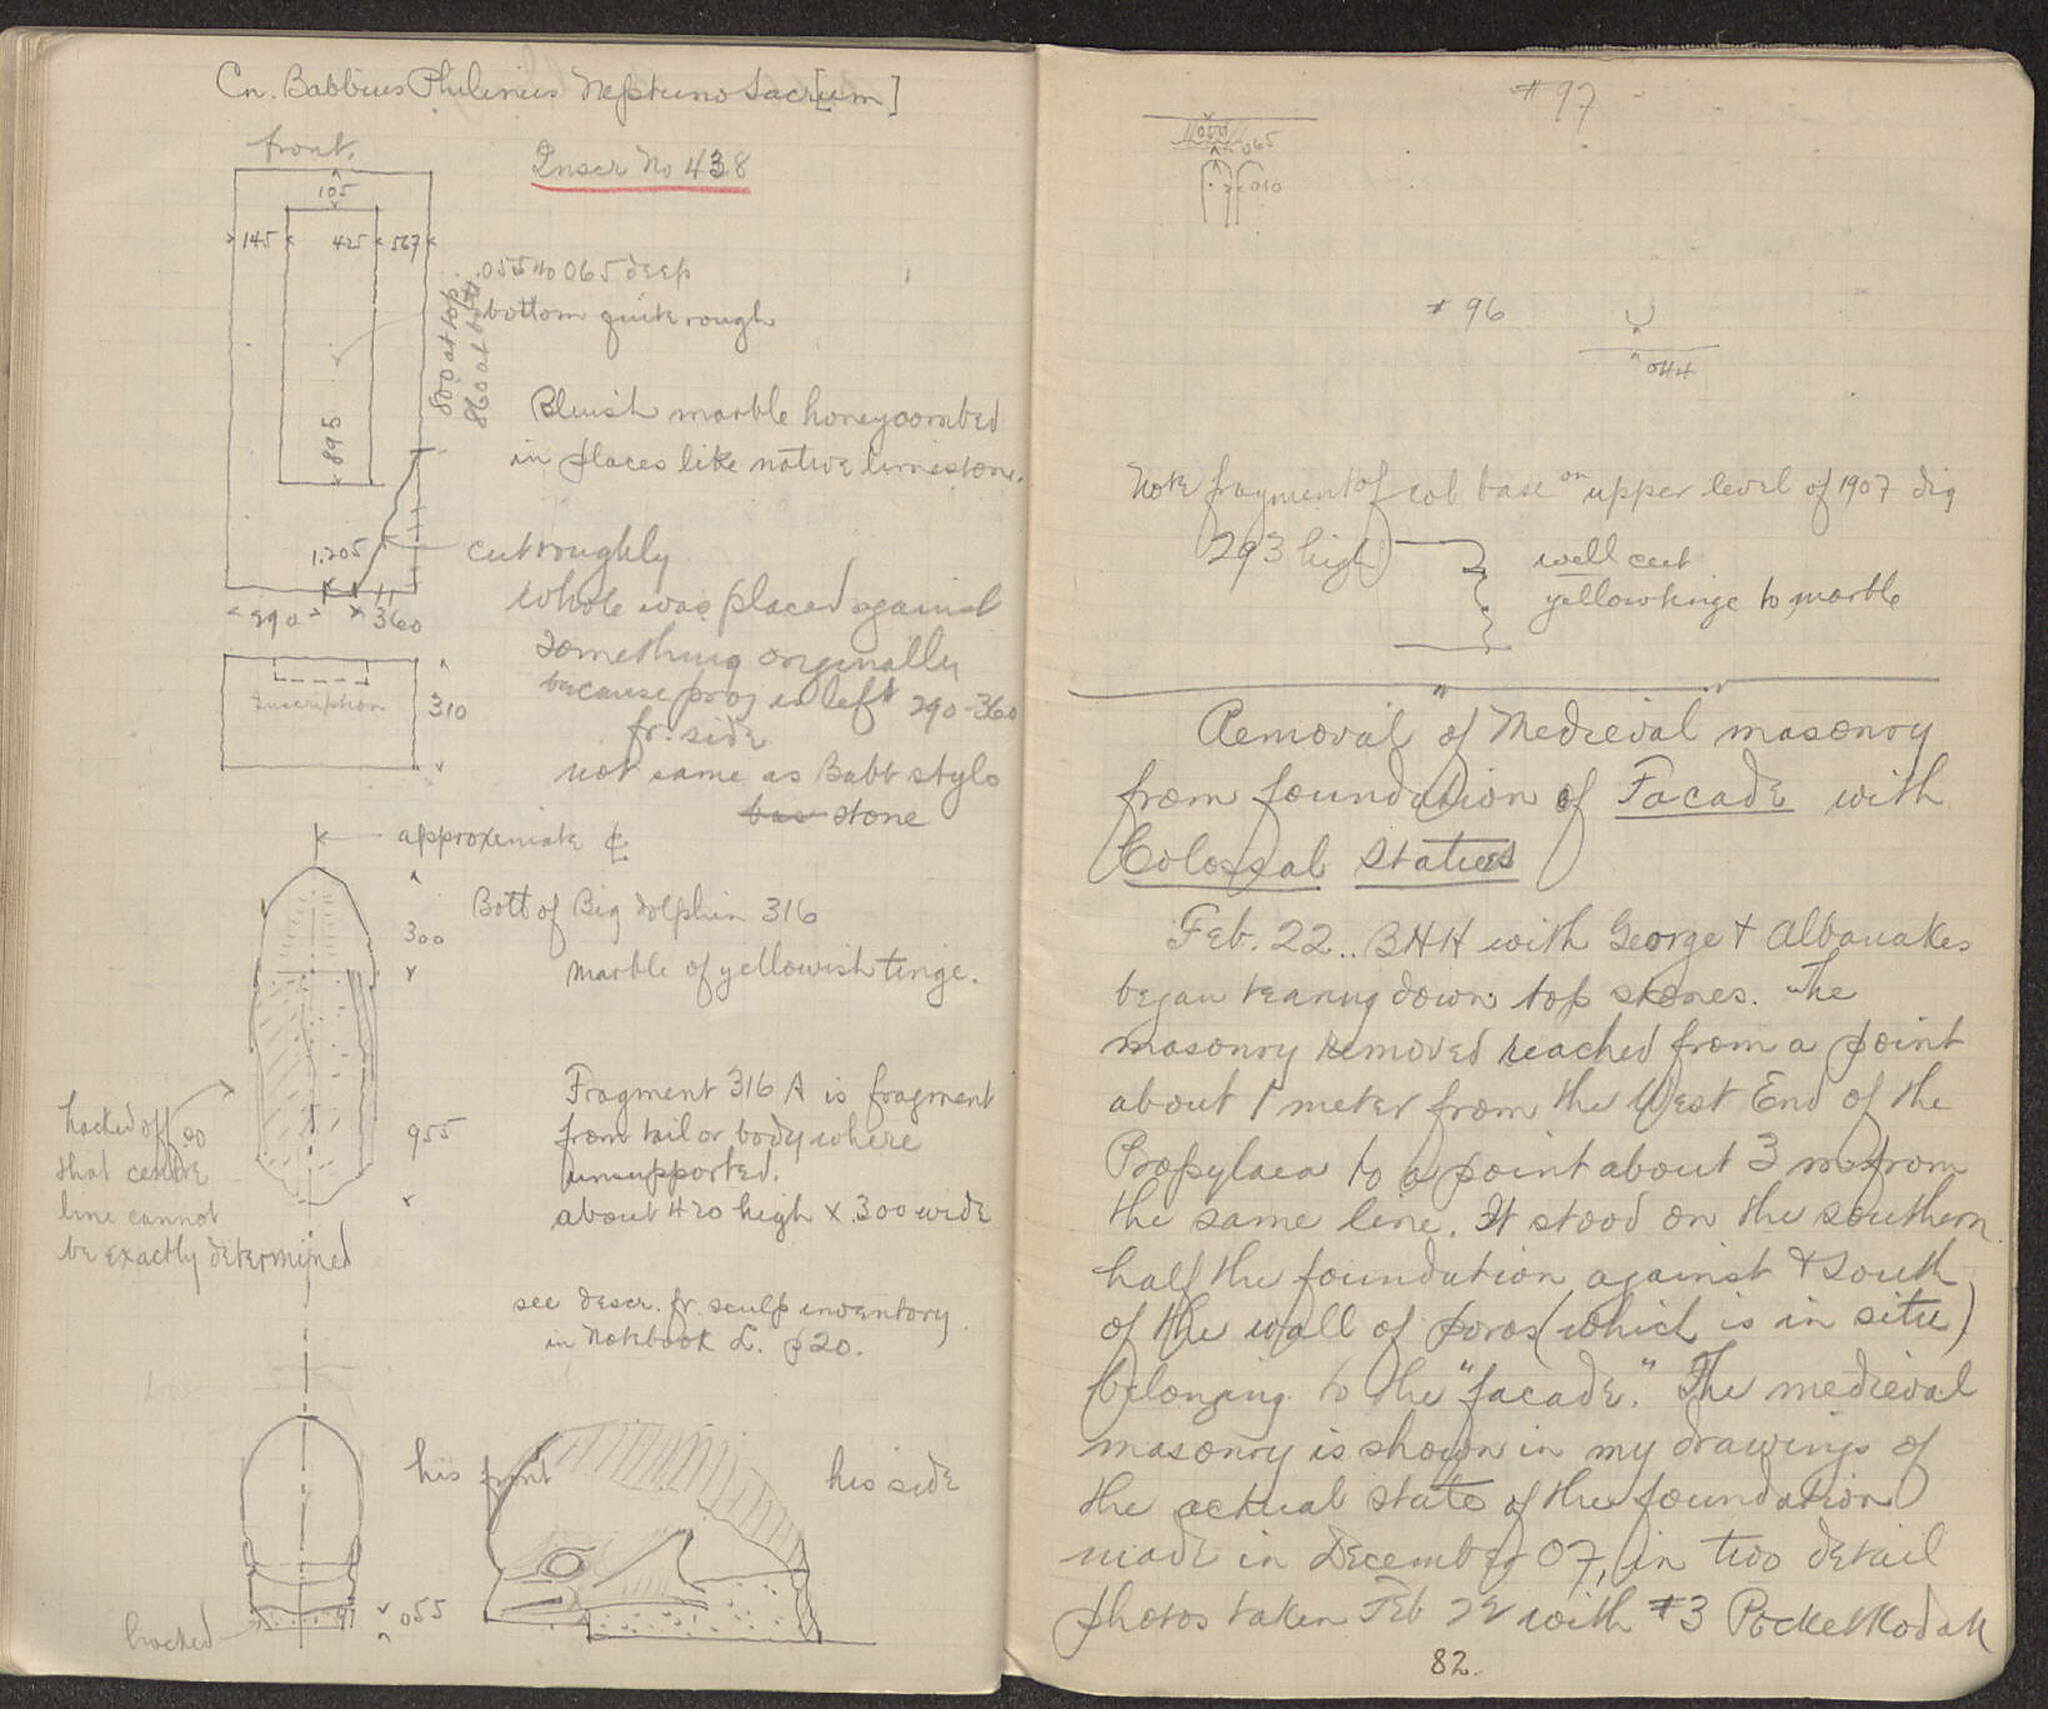 Cn. Babbius Philinus Neptuno Sacr[um]
front.
Inscr No 438
105
145 425 567
.055 to 065 deep
bottom quite rough
800 at top
860 at bott.
895
Bluish marble honeycombed
in places like native limestone.
1.205
cut roughly
290 360
whole was placed against
something originally
because proj is left 290-360
fr. side
Inscription
310
not same as Babb stylo
bas stone
approximate ℄
300
Bott of Big dolphin 316
marble of yellowish tinge.
hacked off so
that centre
line cannot
be exactly determined
955
Fragment 316 A is fragment
from tail or body where
unsupported.
about 420 high x .300 wide
see descr. fr. sculp inventory
in Notebook L. p20.
his front
his side
hacked
055
#97
050
065
010
#96
044
Note fragment of col base on upper level of 1907 dig
293 high
well cut
yellow tinge to marble
Removal of Medieval masonry
from foundation of Facade with
Colossal Statues
Feb. 22.. BHH with George + Albanakes
began tearing down top stones. The
masonry removed reached from a point
about 1 meter from the West End of the
Propylaea to a point about 3 m from
the same line. It stood on the southern
half the foundation against + South
of the wall of poros (which is in situ)
belonging to the "facade." The medieval
masonry is shown in my drawings of
the actual state of the foundation
made in December 07, in two detail
photos taken Feb 22 with #3 Pocket Kodak
82.